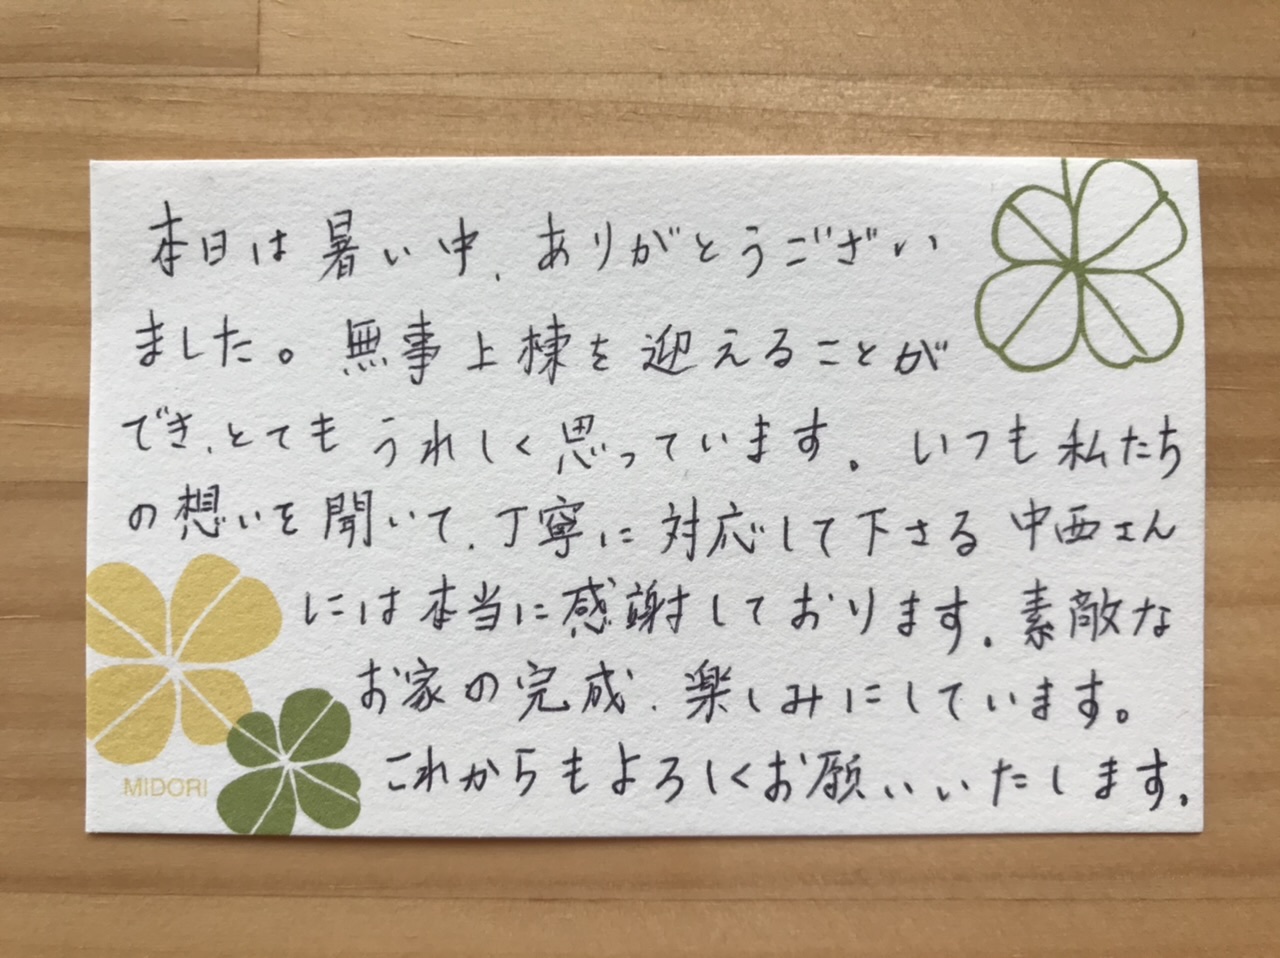 本日は暑い中、ありがとうござい
ました。無事上棟を迎えることが
でき、とてもうれしく思っています。いつも私たち
の想いを聞いて、丁寧に対応して下さる中西さん
には本当に感謝しております。素敵な
お家の完成、楽しみにしています。
これからもよろしくお願いいたします。
MIDORI